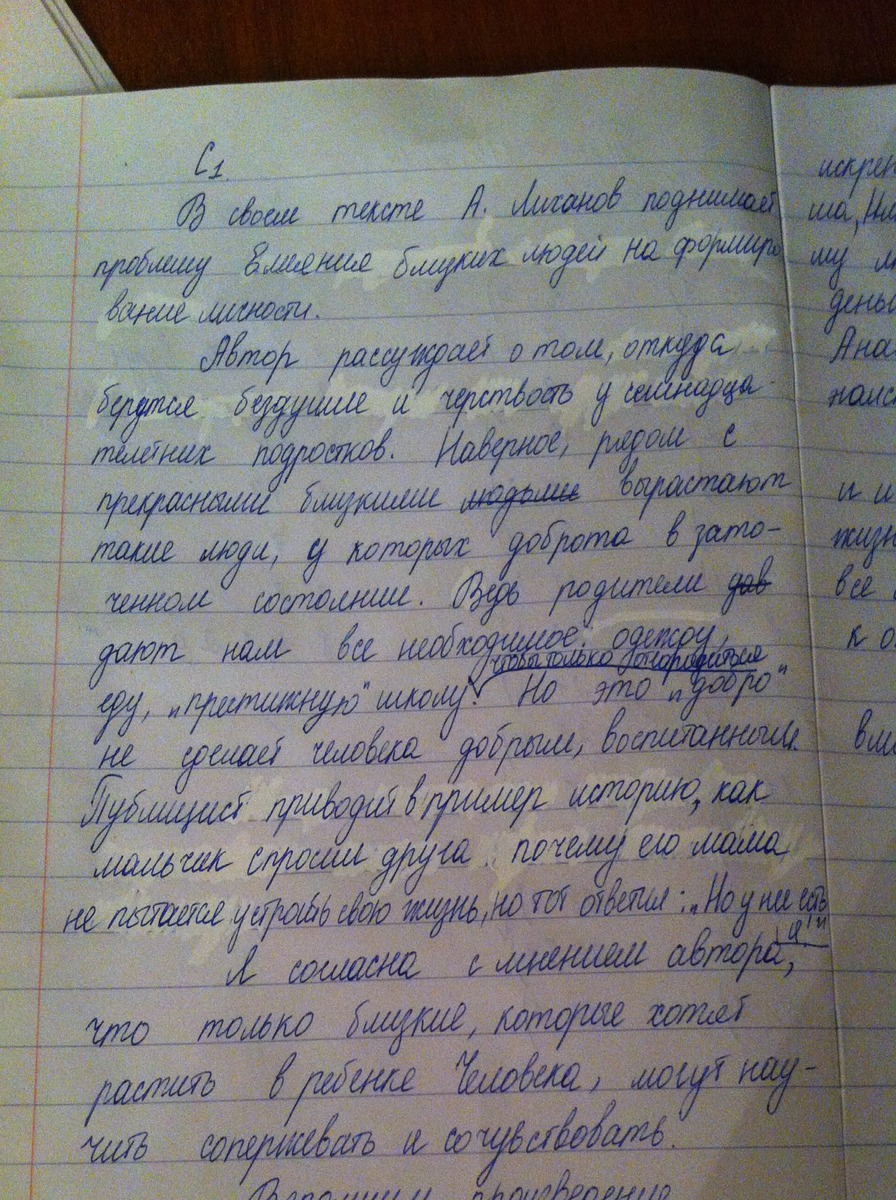 С1.
В своем тексте А. Лиханов поднимает
проблему влияния близких людей на формиро
вание личности.
Автор рассуждает о том, откуда
берутся бездушие и черствость у семнадца-
телетних подростков. Наверное, рядом с
прекрасными близкими людьми вырастают
такие люди, у которых доброта в зато-
ченном состоянии. Ведь родители дав
дают нам все необходимое: одежду,
чтобы только отгородиться
еду, „престижную" школу. Но это „добро"
не сделает человека добрым, воспитанным.
Публицист приводит в пример историю, как
мальчик спросил друга почему его мама
не пытается устроить свою жизнь, но тот ответил: „Но у нее есть
я!"
Я согласна с мнением автора,
что только близкие, которые хотят
растить в ребенке Человека, могут нау-
чить сопержевать и сочувствовать.
Вспомним произведение
искрен
ша, На
му
день
Ана
и и
жизн
все
к о